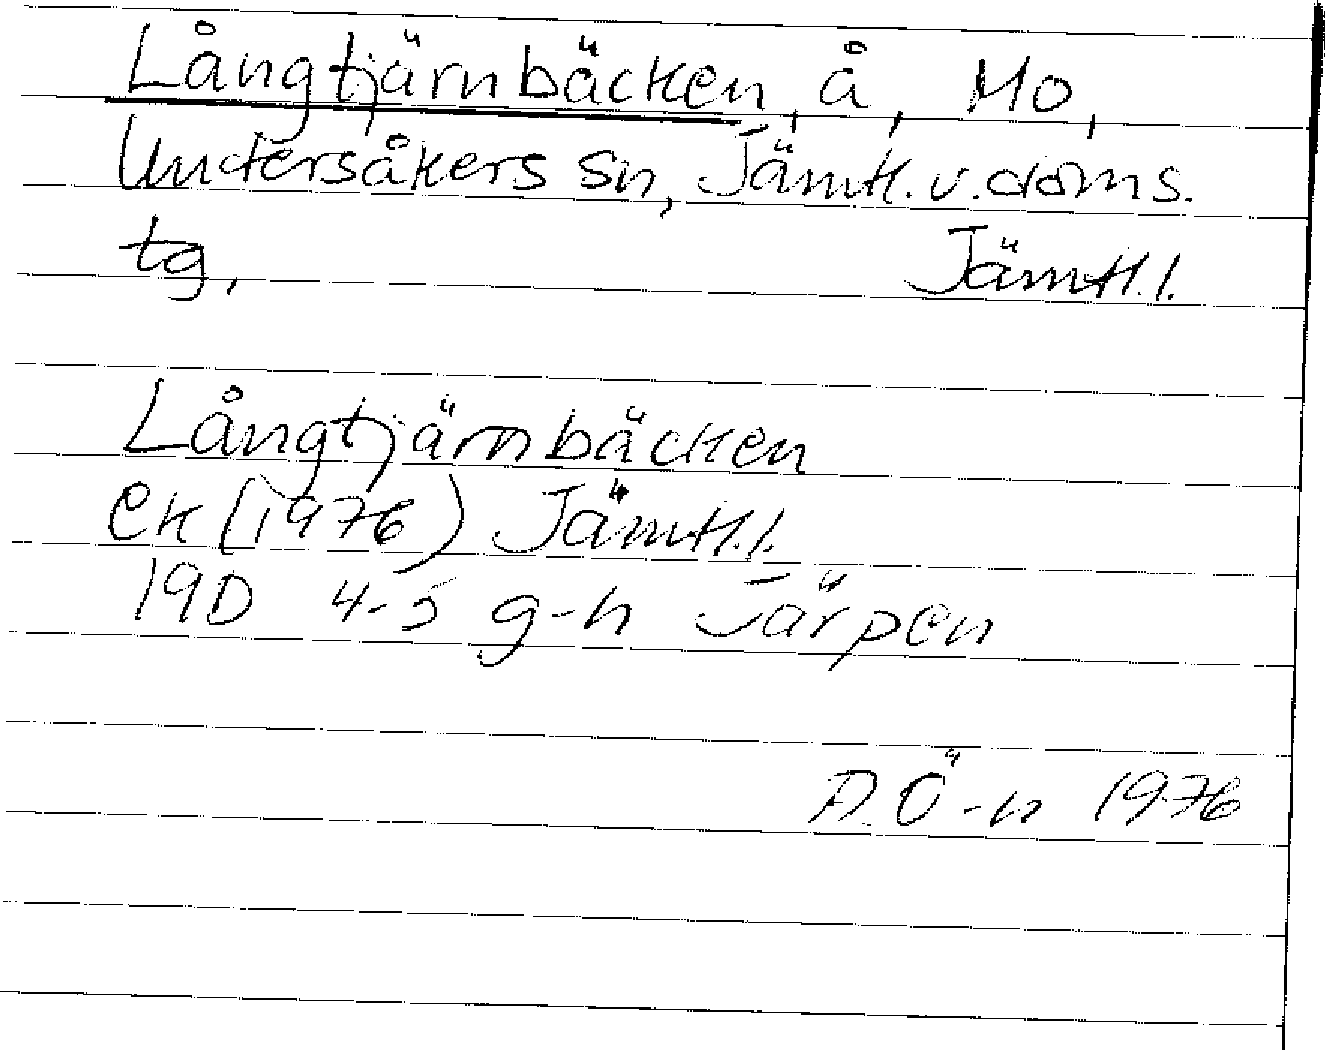 Långtjärnbäcken, å, Mo,
Undersåkers sn, Jämtl. v. doms.
tg, Jämtl. l.
Långtjärnbäcken
Ek (1976) Jämtl. l.
19D 4-5 g-h Järpen
A. Ö-n 1976